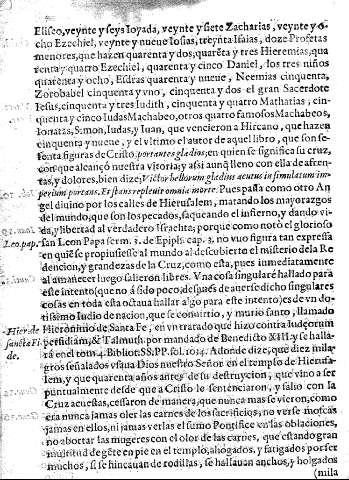 Eliseo, veynte y seys Ioyada, veynte y siete Zacharias, veynte y o-
cho Ezechiel, veynte y nueue Iosias, treynta Isaias, doze Profetas
menores, que hazen quarenta y dos, quarẽta y tres Hieremias, qua
renta y quatro Ezechiel, quarenta y cinco Daniel, los tres niños
quarenta y ocho, Esdras quarenta y nueue, Neemias cinquenta,
Zorobabel cinquenta y vno, cinquenta y dos el gran Sacerdote
Iesus, cinquenta y tres Iudith, cinquenta y quatro Mathatias, cin-
quenta y cinco Iudas Machabeo, otros quatro famosos Machabeos,
Ionatas, Simon, Iudas, y Iuan, que vencieron a Hircano, que hazen
cinquenta y nueue, y el vltimo el autor de aquel libro, que son se-
senta figuras de Cristo, portantes gladios, en quien se significa su cruz,
con que alcançò nuestra vitoria; y assi aunq̃ lleno con ella de afren-
tas, y dolores, bien dize, Victor bellorum gladius acutus in simulatum im-
perium portans, Et stans repleuit omnia morte. Pues passa como otro An
gel diuino por los calles de Hierusalem, matando los mayorazgos
del mundo, que son los pecados, saqueando el infierno, y dando vi-
da, y libertad al verdadero Israelita; porque como notò el glorioso
Leo. pap. san Leon Papa serm. 3. de Epiph. cap. 3. no vuo figura tan expressa
en quiẽ se propiusiesse al mundo al descubierto el misterio dela Re
dencion, y grandezas de la Cruz, como esta, pues inmediatamente
al amanecer luego salieron libres. Vna cosa singular è hallado para
este intento (que no à sido poco, despuès de auerse dicho singulares
cosas en toda esta octaua hallar algo para este intento) es de vn do-
tissimo Iudio de nacion, que se conuirtio, y murio santo, llamado
Hier. de Hieronimo de Santa Fe, en vn tratado que hizo contra Iudęorum
sancta Fi perfidiam, & Talmuth, por mandado de Benedicto XIII. y se halla-
de. rà en el tom 4. Bibliot. SS. PP. fol. 1014. Adonde dize, que diez mila
gros señalados vsaua Dios nuestro Señor en el templo de Hierusa-
lem, y que quarenta años antes de su destruycion, que vino a ser
puntualmente desde que a Cristo le sentenciaron, y salio con la
Cruz acuestas, cessaron de manera, que nunca mas se vieron, como
era nunca jamas oler las carnes de los sacrificios, no verse moscas
jamas en ellos, ni jamas verlas el sumo Pontifice en las oblaciones,
no abortar las mugeres con el olor de las carnes, que estando gran
multitud de gẽte en pie en el templo, ahogados, y fatigados por ser
muchos, si se hincauan de rodillas, se hallauan anchos, y holgados
(mila